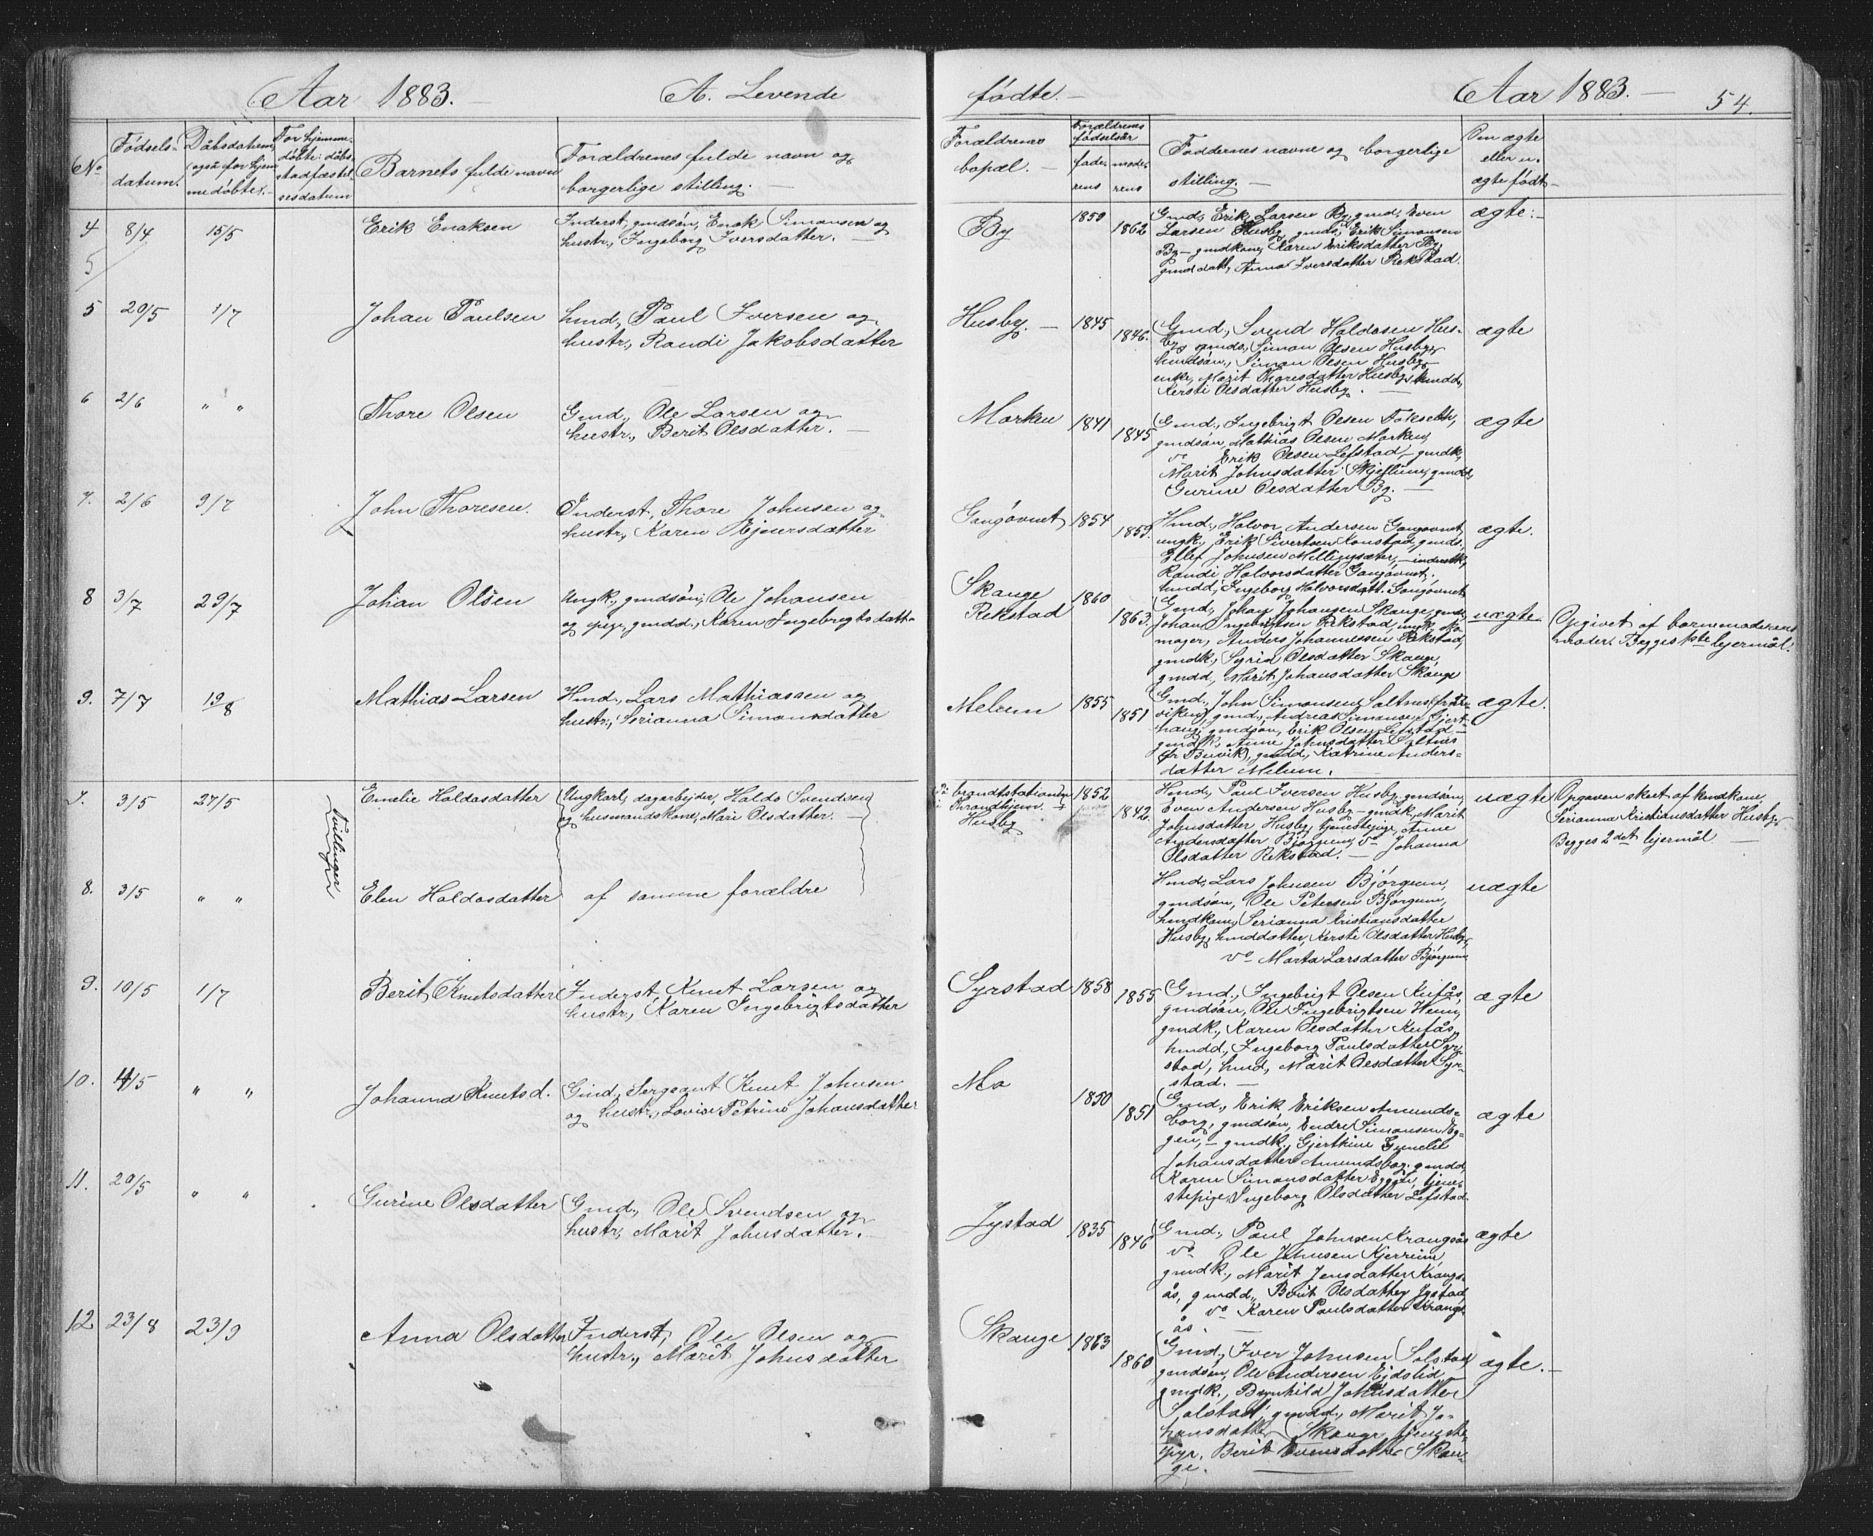 Aar 1883. —
A. Levende
fødte. —
Aar 1883. —
54.
No
Fødsels-
datum.
Dåbsdatum,
også for hjem
medøbte. —
For hjemme-
døbte: dåbs-
stadfæstel-
sesdatum
Barnets fulde navn
Forældrenes fulde navn og
borgerlige stilling. —
Forældrenes
bopæl. —
Forældrenes
fødselsår
fade-
rens
mode-
rens
Faddernes navne og borgerlige
stilling. —
Om ægte
eller u-
ægte født
4 8/4 15/5 Erik Enoksen
Inderst, gmdsøn, Enok Simonsen og
hustr., Ingeborg Iversdatter. —
By 1850 1862
Gmd, Erik Larsen By, gmd, Even
Larsen Husby, gmds, Erik Simonsen
By — gmdkone, Karen Eriksdatter By,
gmddatt, Anna Iversdatter Rekstad.
ægte: —
5
5 20/5 1/7 Johan Paulsen
hmd, Paul Iversen og
hustr., Randi Jakobsdatter
Husby. — 1845 1846.
Gmd., Svend Haldosen Hus-
by, gmds, Simon Olsen Husby,
hmdsøn, Simon Olsen Husby,
enke, Marit Datter Husby, hmdd,
Kersti Olsdatter Husby. —
ægte
6 2/6 " " Thore Olsen
Gmd., Ole Larsen og
hustr., Berit Olsdatter. —
Morken 1841 1845
Gmd., Ingebrigt Olsen Fokseth,
gmdsøn, Mathias Olsen Morken,
vo Erik Olsen Lefstad, — gmdk,
Marit Johnsdatter Skjeflum, gmdd,
Gurine Olsdatter By. —
ægte
7. 2/6 9/7 John Thoresen.
Inderst, Thore Johnsen og
hustr., Karen Ejnersdatter
Gangøvnet 1854 1853.
Hmd, Halvor Andersen Gangøvnet,
ungk., Erik Sivertsen Konstad, gmds.
Ellef Johnsen Millingsæter, — inderstk,
Randi Halvorsdatter Gangøvnet,
hmdd, Ingeborg Halvorsdatt. Gangøvnet
ægte.
8 3/7 29/7 Johan Olsen
Ungk., gmdsøn, Ole Johansen
og pige, gmdd., Karen Ingebrigtsdatt.
Skauge
Rekstad
1860 1863.
Gmd, Johan Johansen Skauge, gmds,
Johan Ingebrigtsen Rekstad, ungk, sko-
mager, Anders Johannessen Rekstad,
gmdk, Syrid Olsdatter Skauge,
gmdd, Marit Johansdatter Skauge
uægte
Opgivet af barnemoderens
moder. Begges 1ste lejermål.
9. 7/7 19/8 Mathias Larsen
Hmd, Lars Mathiassen og
hustr., Serianna Simonsdatter
Melum 1855 1851
Gmd, John Simonsen Saltnes (fra Bu-
viken), gmd, Andreas Simonsen Gjert-
haug, gmdsøn, Erik Olsen Lefstad —
gmdk, Anne Johnsdatter Saltnes
(fr Buvik), gmdd, Katrine Anders-
datter Melum.
ægte.
7. 3/5 27/5 Emelie Haldosdatter
Ungkarl, dagarbejder, Haldo Svendsen
og husmandskone, Mari Olsdatter. —
Tvillinger
brandtstationen
Trondhjem. —
Husby
1852 1842.
Hmd, Paul Iversen Husby, gmdsøn,
Even Andersen Husby — gmdk, Marit
Johnsdatter Husby, tjenestepige, Anne
Andersdatter Bjørgum, vo Johanna
Olsdatter Rekstad. —
uægte
Opgaven skeet af hmdkone
Serianna Kristiansdatter Husby.
Begges 2det lejermål —
8. 3/5 " " Elen Haldosdatter
af samme forældre
Hmd, Lars Johnsen Bjørgum,
gmdsøn, Ole Petersen Bjørgum,
hmdkone, Serianna Kristiansdatter
Husby, hmddatter, Kersti Olsdatter Husby,
vo Marta Larsdatter Bjørgum
uægte
9. 10/5 1/7 Berit Knutsdatter
Inderst, Knut Larsen og
hustr., Karen Ingebrigtsdatter
Syrstad 1858 1855
Gmd., Ingebrigt Olsen Kufås,
gmdsøn, Ole Ingebrigtsen Heim,
gmdk., Karen Olsdatter Kufås,
hmdd, Ingeborg Paulsdatter Syr-
stad, hmd, Marit Olsdatter Syr-
stad. —
ægte
10. 4/5 " " Johanna Knutsd.
Gmd, Sergeant Knut Johnsen
og hustr., Lovise Petrine Johansdatter
Mo 1850 1851
Gmd., Erik Eriksen Amunds-
borg, gmdsøn, Endre Simonsen Eg-
gen, — gmdk., Gjertkine Gunelie
Johansdatter Amundsbog. gmdd,
Karen Simonsdatter Eggen, tjene-
stepige, Ingeborg Olsdatter Lefstad
ægte
11. 20/5 " " Gurine Olsdatter
Gmd, Ole Svendsen og
hustr, Marit Johnsdatter. —
Jystad 1835 1846
Gmd., Paul Johnsen Krangsås
vo Ole Johnsen Kjerreim,
gmdk., Marit Jensdatter Krangs-
ås, gmdd, Berit Olsdatter Jystad,
vo Karen Paulsdatter Krangs-
ås. —
ægte
12 23/8 23/9 Anna Olsdatter
Inderst, Ole Olsen og
hustr., Marit Johnsdatter
Skauge 1863 1860
Gmd, Iver Johnsen Solstad,
gmdsøn, Ole Andersen Ejdslid —
gmdk., Brynhild Johnsdatter
Solstad, gmdd., Marit Jo-
hansdatter Skauge, tjeneste-
pge, Berit Evensdatter Skau-
ge.
ægte. —